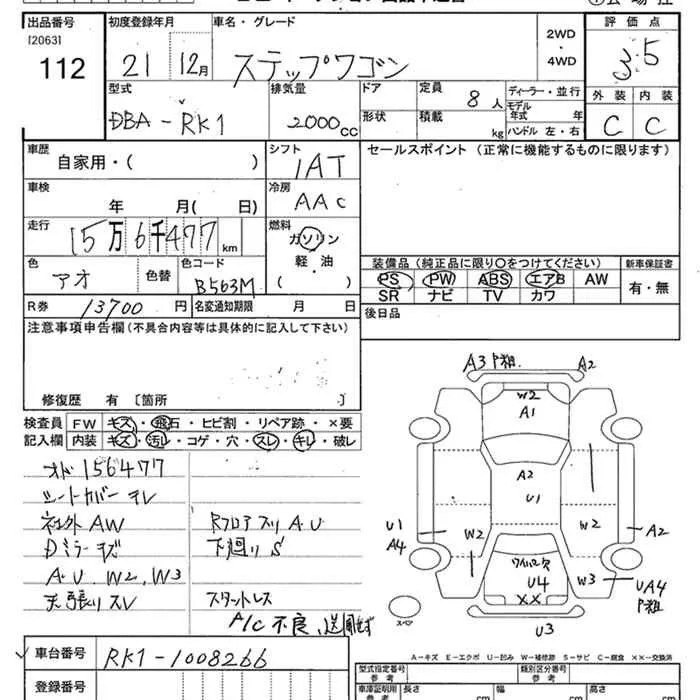 出品番号 初度登録年月 車名・グレード 評価点
[2063]
112 21 12月 ステップワゴン 2WD・4WD 3.5
型式 排気量 ドア 定員 ディーラー・並行 外装 内装
DBA-RK1 2000cc 8人 モデル年式 年 C C
形状 積載 kg ハンドル 左・右
車歴 シフト セールスポイント (正常に機能するものに限ります)
自家用・( ) IAT
車検 冷房
年 月( 日) AAC
走行 燃料
15万6千477km ガソリン
軽・油
( )
装備品(純正品に限り〇をつけてください) 新車保証書
色 色替 色コード PS PW ABS エアB AW 有・無
アオ B563M SR ナビ TV カワ
R券 13700円 名変通知期限 月 日 後日品
注意事項申告欄(不具合内容等は具体的に記入して下さい)
修復歴 有 [箇所 ]
検査員 FW キズ・飛石・ヒビ割・リペア跡・×要
記入欄 内装 キズ・汚レ・コゲ・穴・スレ・キレ・破レ
オド 156477
シートカバー キレ
社外 AW RフロアスリA.U
Dミラーキズ 下廻り S
A.U.W2.W3
天張りスレ スタットレス
A/C 不良
A3 A2
W2
A1
A2
U1
U1 A4 W2 W2 A2
ワイパー欠
U4
XX
W3 UA4
U3
スペア
A-キズ E-エクボ U-凹み W-補修跡 S-サビ C-腐食 XX-交換済
車台番号 RK1-1008266
登録番号
型式指定番号 参考 類別区分番号 参考
車庫証明用 参考 長さ cm 幅 cm 高さ cm